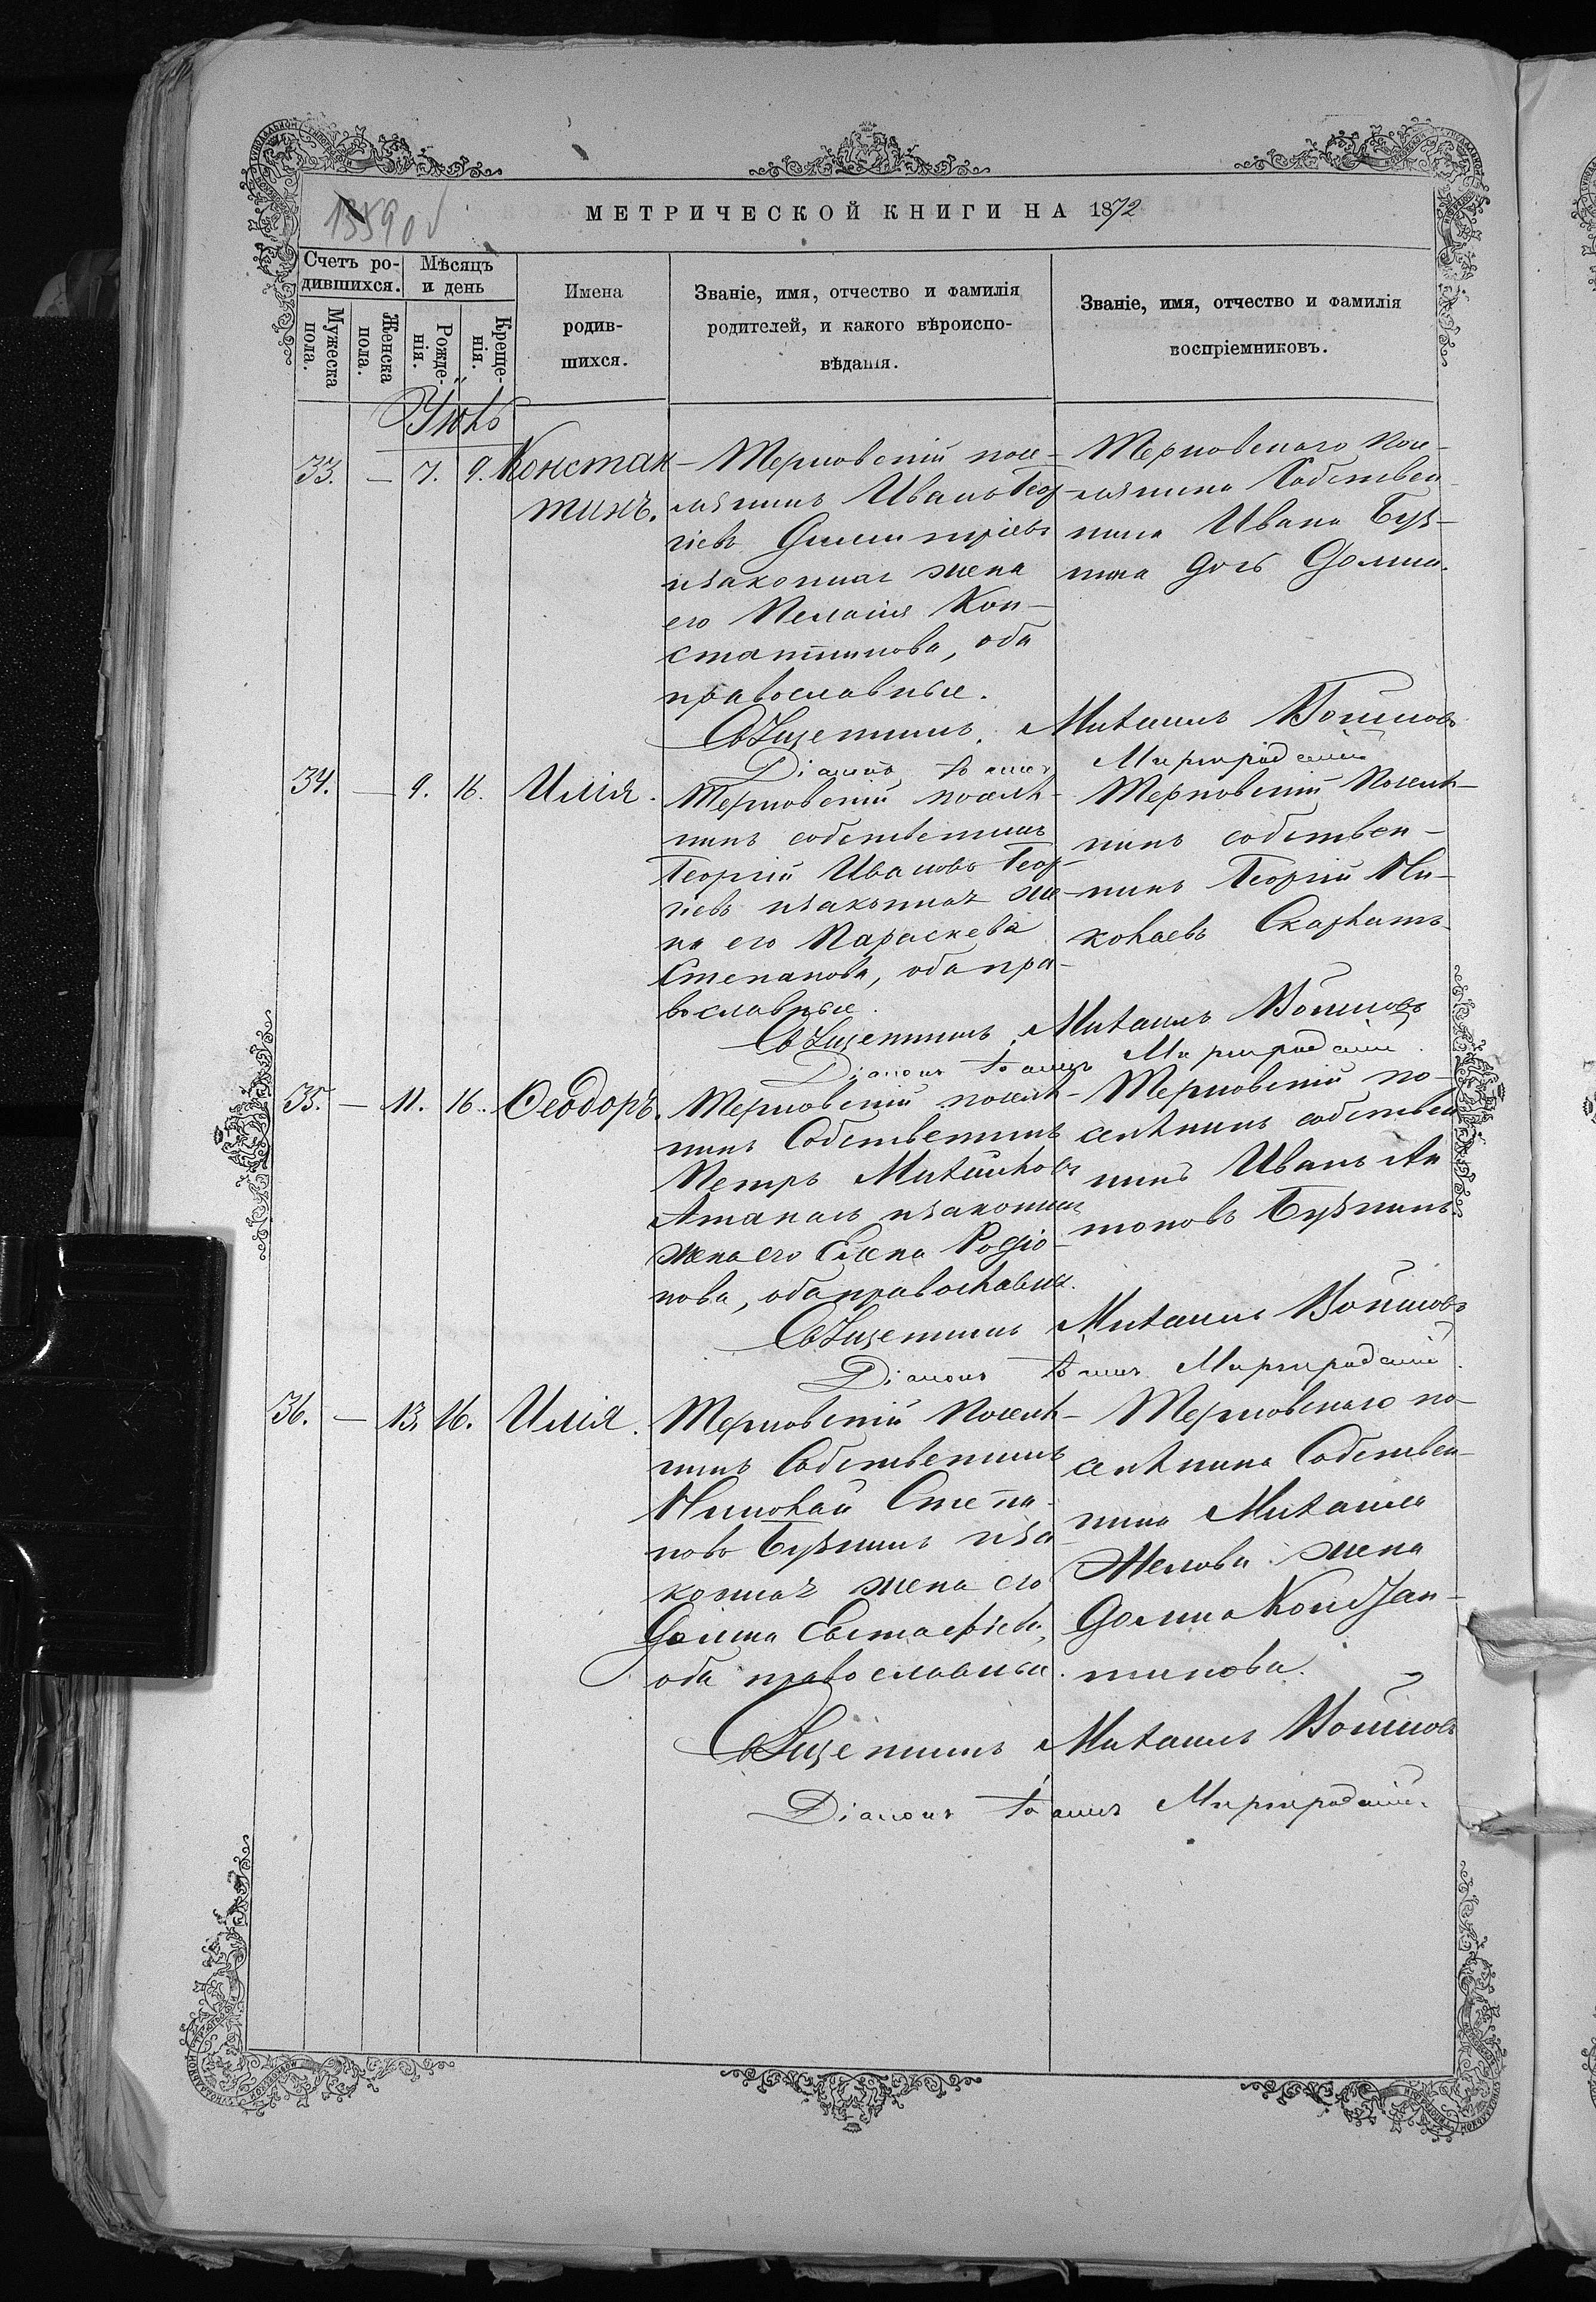 13590
МЕТРИЧЕСКОЙ КНИГИ НА 1872
Счетъ ро-
дившихся.
Мѣсяцъ
и день
Мужеска
пола.
Женска
пола.
Рожде-
нія.
Креще-
нія.
Имена
родив-
шихся.
Званіе, имя, отчество и фамилія
родителей, и какого вѣроиспо-
вѣданія.
Званіе, имя, отчество и фамилія
воспріемниковъ.
Іюль
33. — 7. 9. Констан-
тинъ.
Терновскій посе-
лянинъ Иванъ Геор-
гіевъ Димитріевъ
изаконная жена
его Пелагія Кон-
стантинова, оба
православные.
Терновскаго посе-
лянина Собствен-
ника Ивана Буз-
дочь Домна.
Священникъ Михаилъ Войновъ
Діаконъ Іоаннъ Миргородскій
34. — 9. 16. Илія.
Терновскій поселя-
нинъ собственникъ
Георгій Ивановъ Геор-
гіевъ изаконная же-
на его Параскева
Степанова, оба пра-
вославные.
Терновскій Поселя-
нинъ собствен-
никъ Георгій Ни-
колаевъ
Священникъ Михаилъ Войновъ
Діаконъ Іоаннъ Миргородскій
35. — 11. 16. Ѳеодоръ.
Терновскій поселя-
нинъ Собственникъ
Петръ Михайловъ
Атанасъ изаконная
жена его Елена Родіо-
нова, оба православные.
Терновскій по-
селянинъ собствен
никъ Иванъ Ан
тоновъ
Священникъ Михаилъ Войновъ
Діаконъ Іоаннъ Миргородскій
36. — 13. 16. Илія.
Терновскій Поселя-
нинъ Собственникъ
Николай Степа-
новъ иза
конная жена его
Домна Евстафіева,
оба православные.
Терновскаго по-
селянина Собствен-
ника Михаила
Желова жена
Домна Констан-
тинова.
Священникъ Михаилъ Войновъ
Діаконъ Іоаннъ Миргородскій